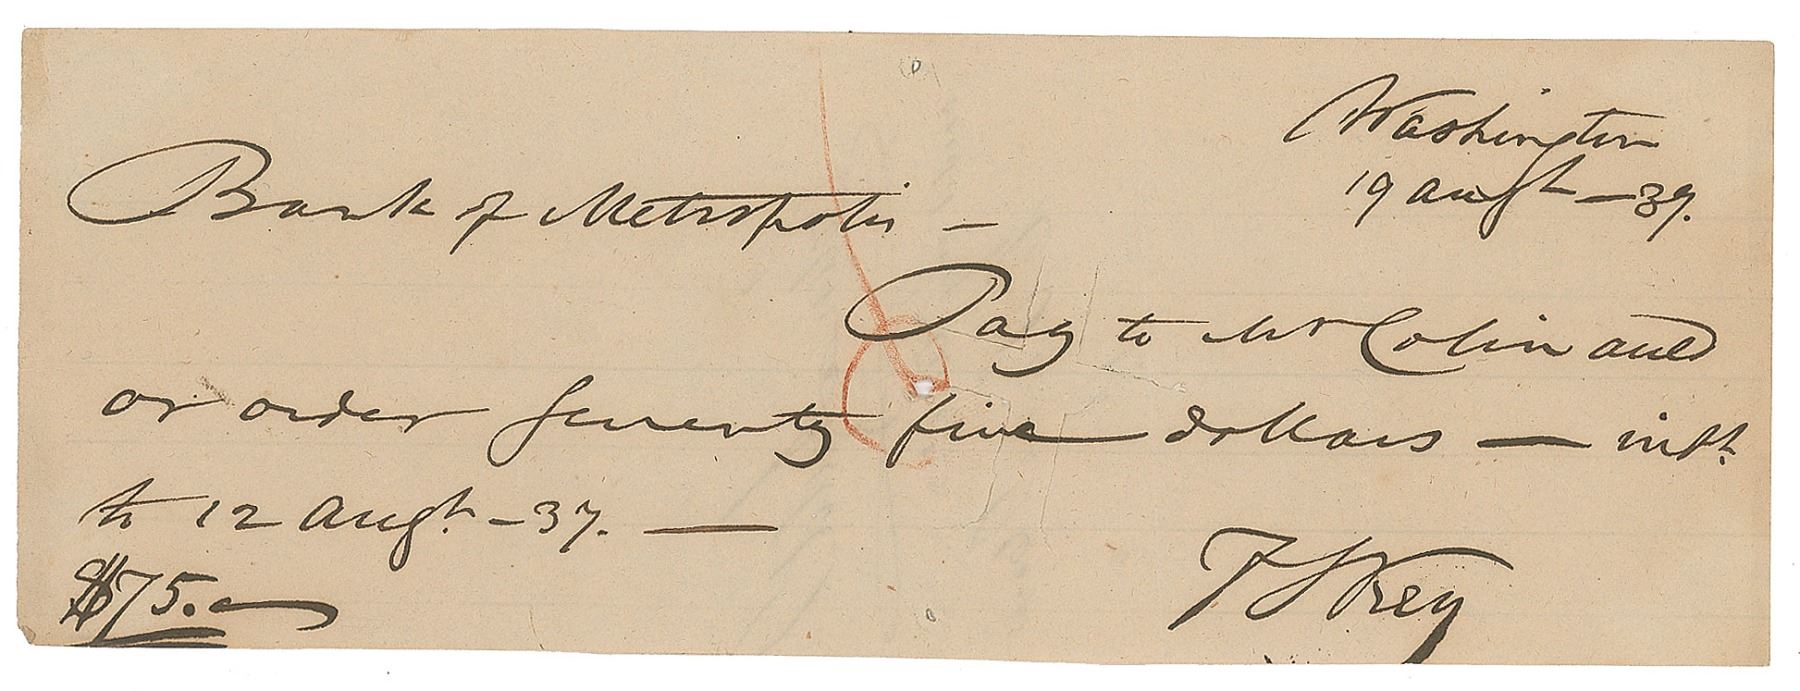 Washington
19 Augt – 39.
Bank of Metropolis –
Pay to Mr Colin Auld
or order seventy five dollars — intt.
to 12 Augt. – 37. —
$75.
F S Key